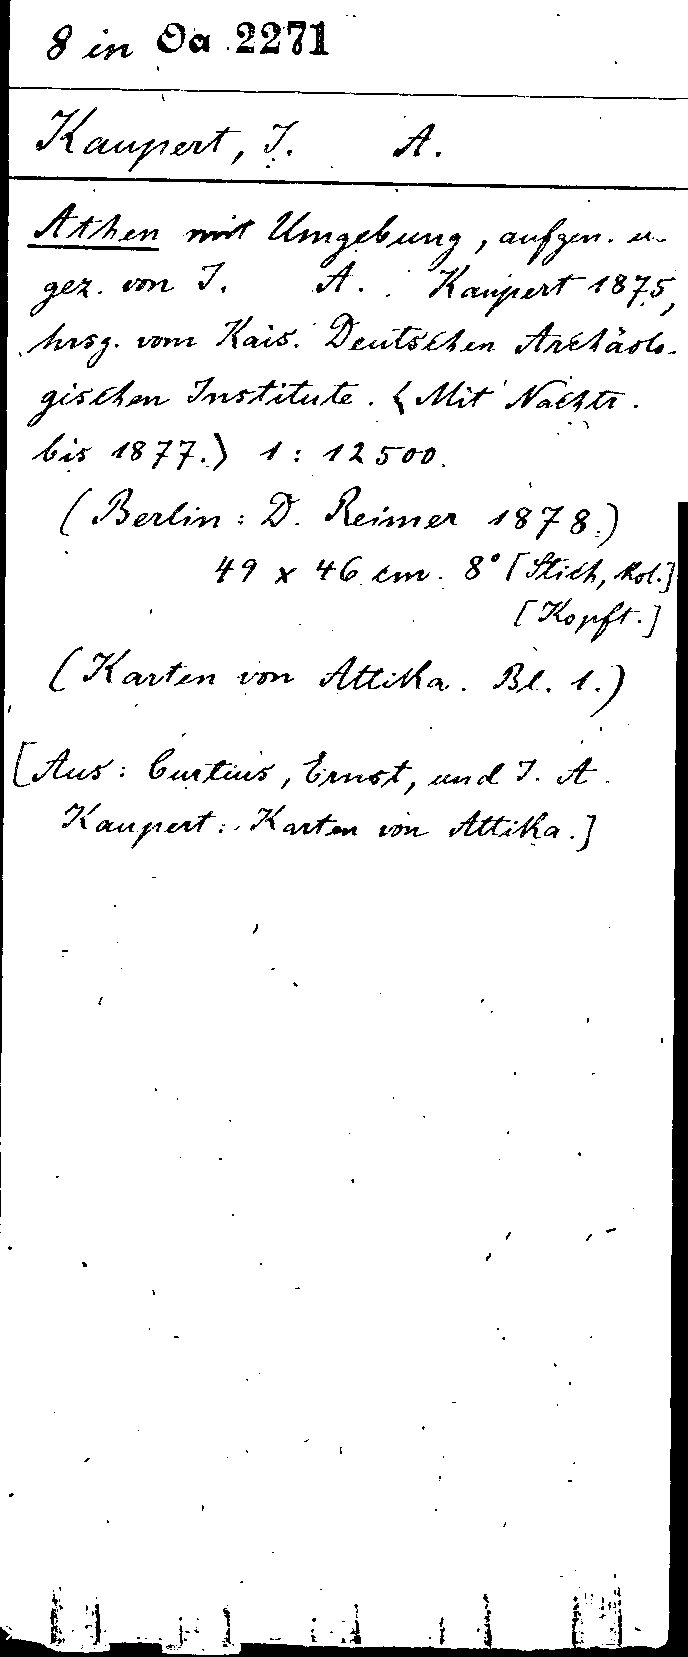 8 in Oa 2271
Kaupert, J. A.
Athen mit Umgebung, aufgen. u.
gez. von J. A. Kaupert 1875,
hrsg. vom Kais. Deutschen Archäolo-
gischen Institute. <Mit Nachtr.
bis 1877.> 1 : 12 500.
(Berlin: D. Reimer 1878.)
49 x 46 cm. 8° [Stich, kol.]
[Kopft.]
(Karten von Attika. Bl. 1.)
[Aus: Curtius, Ernst, und J. A.
Kaupert: Karten von Attika.]